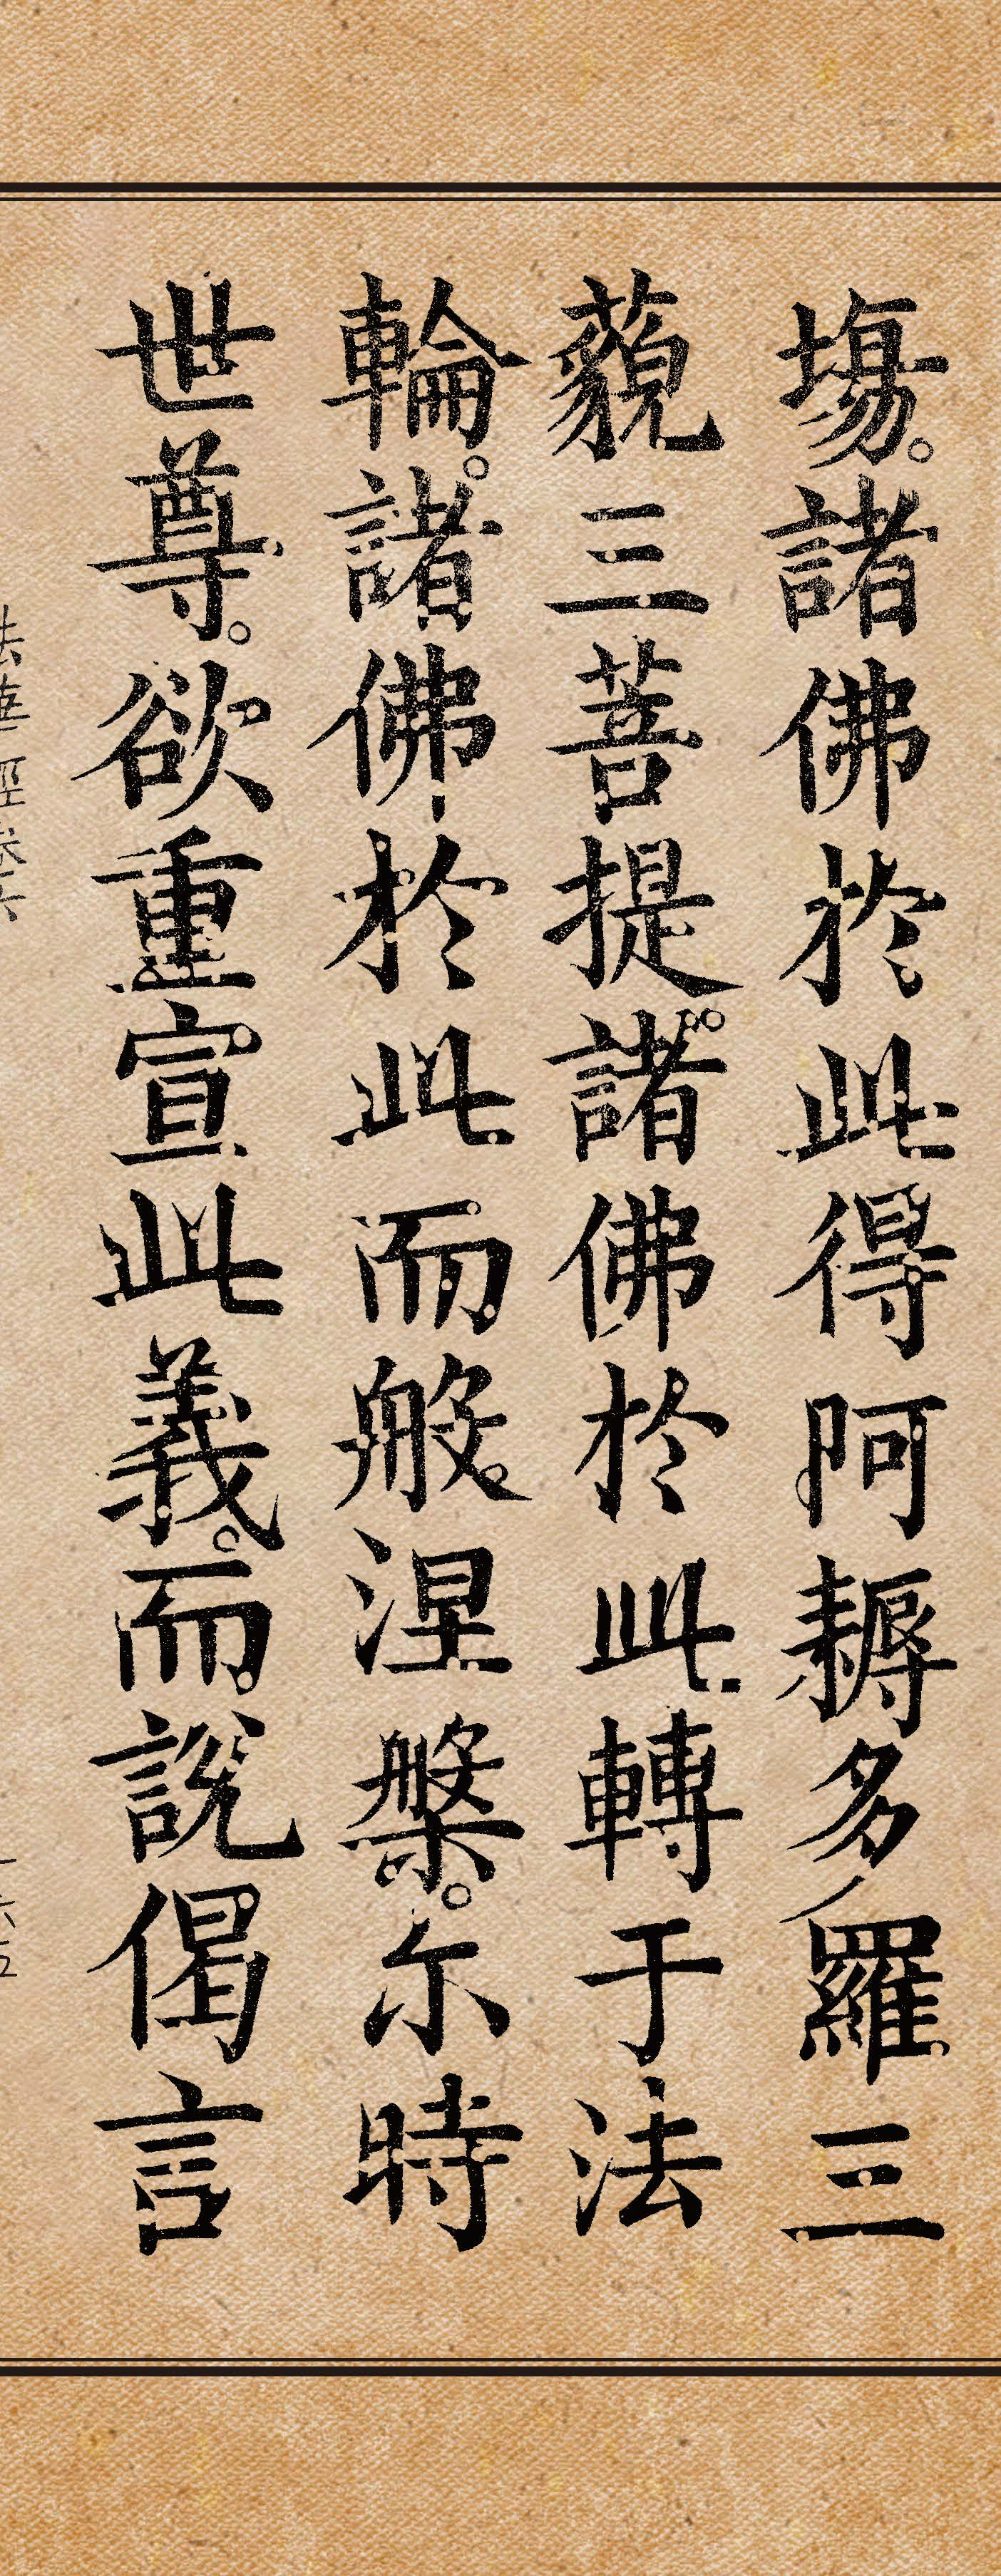 塲。諸佛於此得阿耨多羅三
藐三菩提。諸佛於此轉于法
輪。諸佛於此而般涅槃。尒時
世尊。欲重宣此義。而說偈言